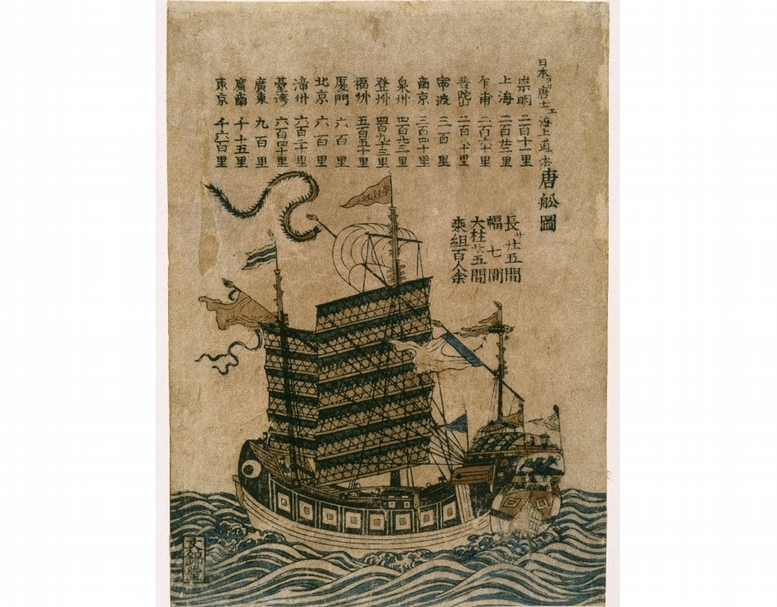 日本ヨリ唐土エ海上道法
唐舩圖
崇明 二百十一里
上海 二百廿二里
乍甫 二百六十里
普陀山 二百八十里
寧波 三百里
南京 三百四十里
泉州 四百廿三里
登州 四百九十三里
福州 五百五十里
厦門 六百里
北京 六百里
漳州 六百二十里
臺灣 六百四十里
廣東 九百里
廣南 千十五里
東京 千六百里
長サ廿五間
幅七間
大柱廿五間
乘組百人余
文錦堂